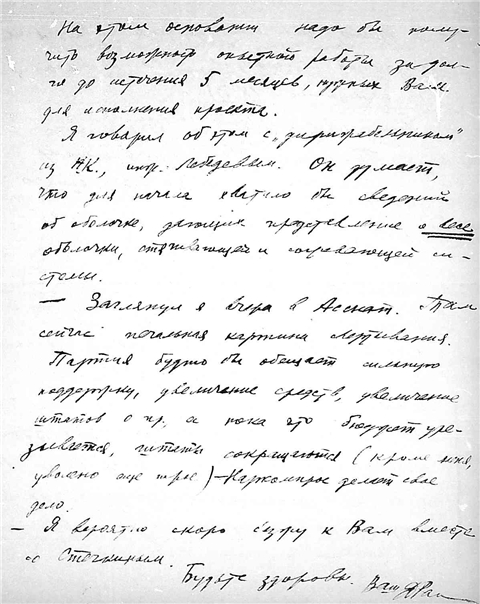 На этом основании надо бы полу-
чить возможность опытной работы задол-
го до истечения 5 месяцев, нужных Вам
для исполнения проекта.
Я говорил об этом с „дирижабельником"
из НК., инж. Лебедевым. Он думает,
что для начала хватило бы сведений
об оболочке, дающих представление о весе
оболочки, стягивающей и согревающей си-
стемы.
— Заглянул я вчера в Аснат. Там
сейчас печальная картина свертывания.
Партия будто бы обещает сильную
поддержку, увеличение средств, увеличение
штатов и пр. а пока что бюджет уре-
зывается, штаты сокращаются (кроме меня,
уволено еще трое) — Наркомпрос делает свое
дело.
— Я вероятно скоро съезжу к Вам вместе
со
Будьте здоровы. Ваш